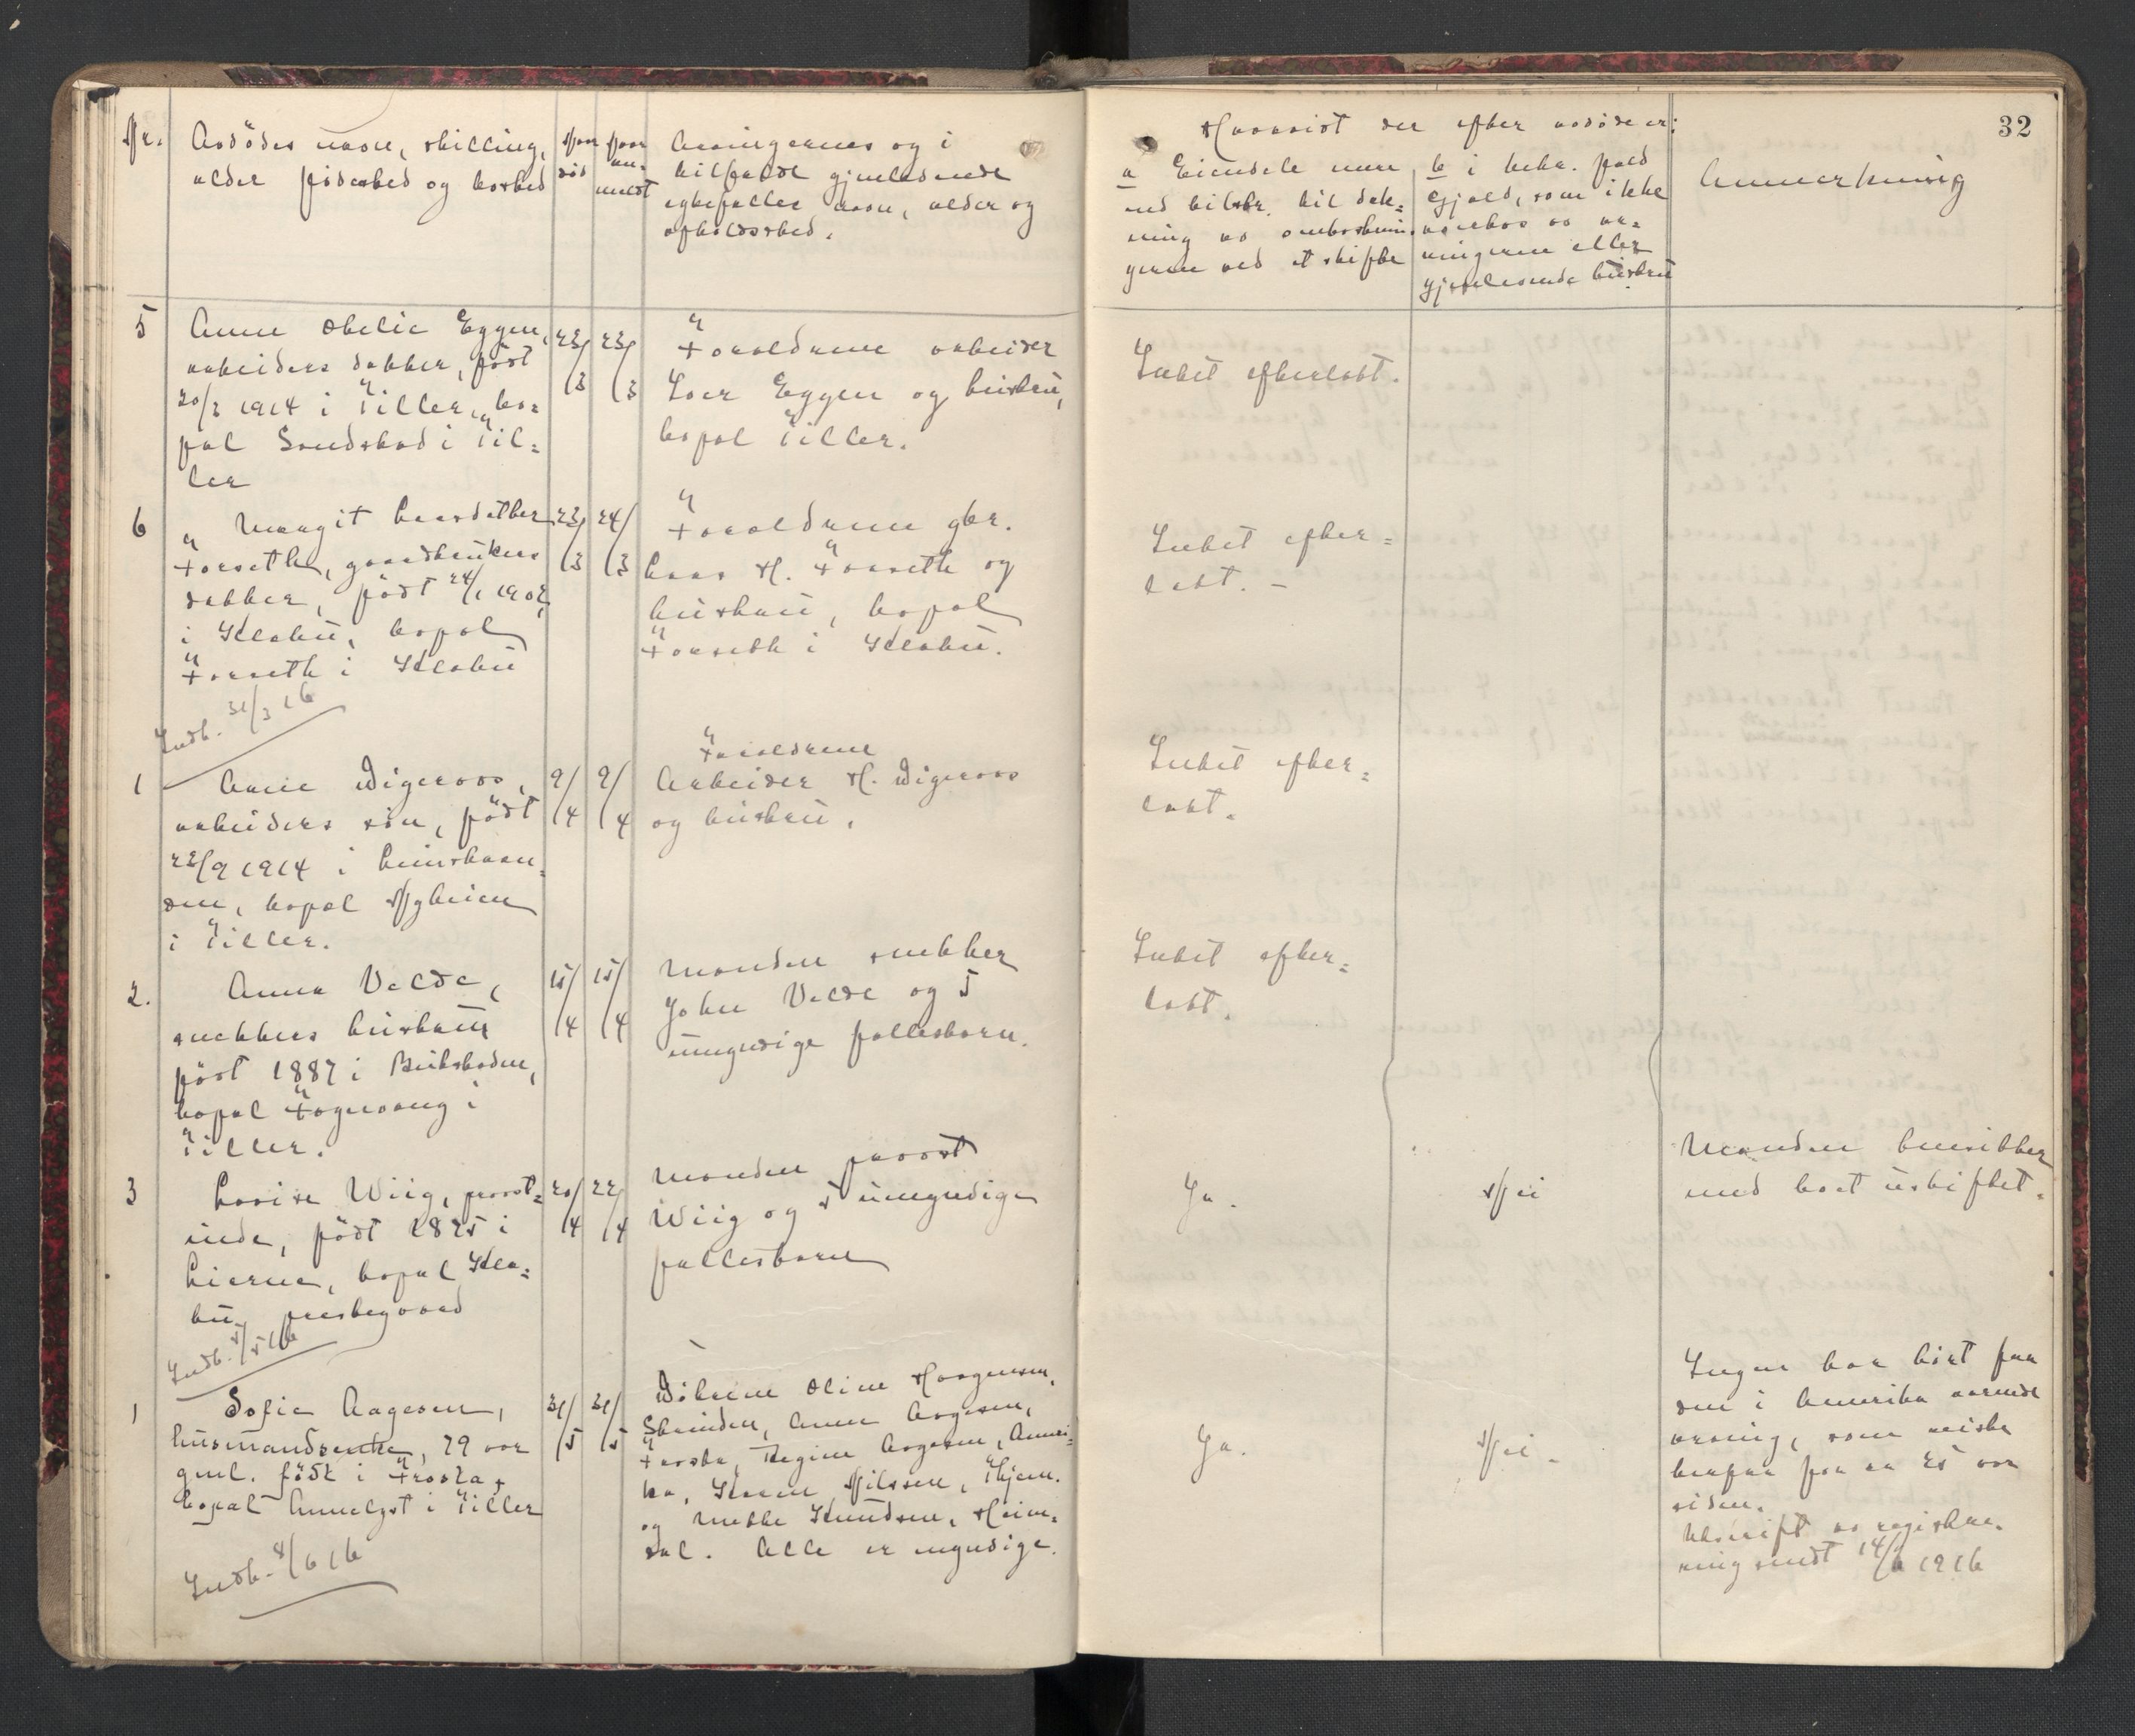 32
Nr.
Avdödes navn, stilling,
alder födested og bosted
Naar
död
Naar
an-
meldt
Arvingernes og i
tilfælde gjenlevende
egtefælles navn, alder og
opholdssted.
Hvorvidt der efter avdöde er:
a Eiendele mere
end tilstr. til dæk=
ning av omkostnin-
gerne ved et skifte
b i bekr. fald
Gjæld, som ikke
vedtas av ar=
vingerne eller
gjenlevende hustru
Anmerkning
5
Anne Otelie Eggen,
arbeiders datter, födt
20/2 1914 i Tiller, bo=
pæl Sandstad i Til=
ler
23/3
23/3
Forældrene arbeider
Loer Eggen og hustru,
bopæl Tiller.
Intet efterladt.
6
Margit Laardatter
Forseth, gaardbrukers
datter, födt 24/1 1902
i Klæbu, bopæl
Forseth i Klæbu
23/3
24/3
Forældrene gbr.
Lars H. Forseth og
hustru, bopæl
Forseth i Klæbu.
Intet efter=
ladt. -
Indb. 31/3 16
1
Arne Digeraas,
arbeiders sön, födt
22/9 1914 i Leinstran=
den, bopæl Nyheien
i Tiller.
9/4
9/4
Forældrene
Arbeider H. Digeraas
og hustru.
Intet efter=
ladt.
2.
Anna Volde,
snekkers hustru
födt 1887 i Beitstaden,
bopæl Fagervang i
Tiller.
15/4
15/4
Manden snekker
John Volde og 5
umyndige fællesbarn.
Intet efter=
ladt.
3
Lovise Wiig, provst=
inde, födt 1875 i
Lierne, bopæl Klæ=
bu prestegaard
20/4
22/4
Manden provst
Wiig og 5 umyndige
fællesbarn
Ja.
Nei
Manden hensitter
med boet uskiftet.
Indb. 1/5 16
1
Sofie Aagesen,
husmandsenke, 79 aar
gml. födt i Frosta,
bopæl Annelyst i Tiller
31/5
31/5
Döttrene Oline Haagensen,
Strinden, Anne Aagesen,
Frosta, Regine Aagesen, Ameri=
ka, Karen Nilssen, Thjem.
og Mette Knudsen, Heim=
dal. Alle er myndige.
Ja.
Nei.
Ingen har hört fra
den i Amerika værende
arving, som reiste
herfra for ca 25 aar
siden.
Utskrift av registre.
ring sendt 14/6 1916
Indb. 8/6 16